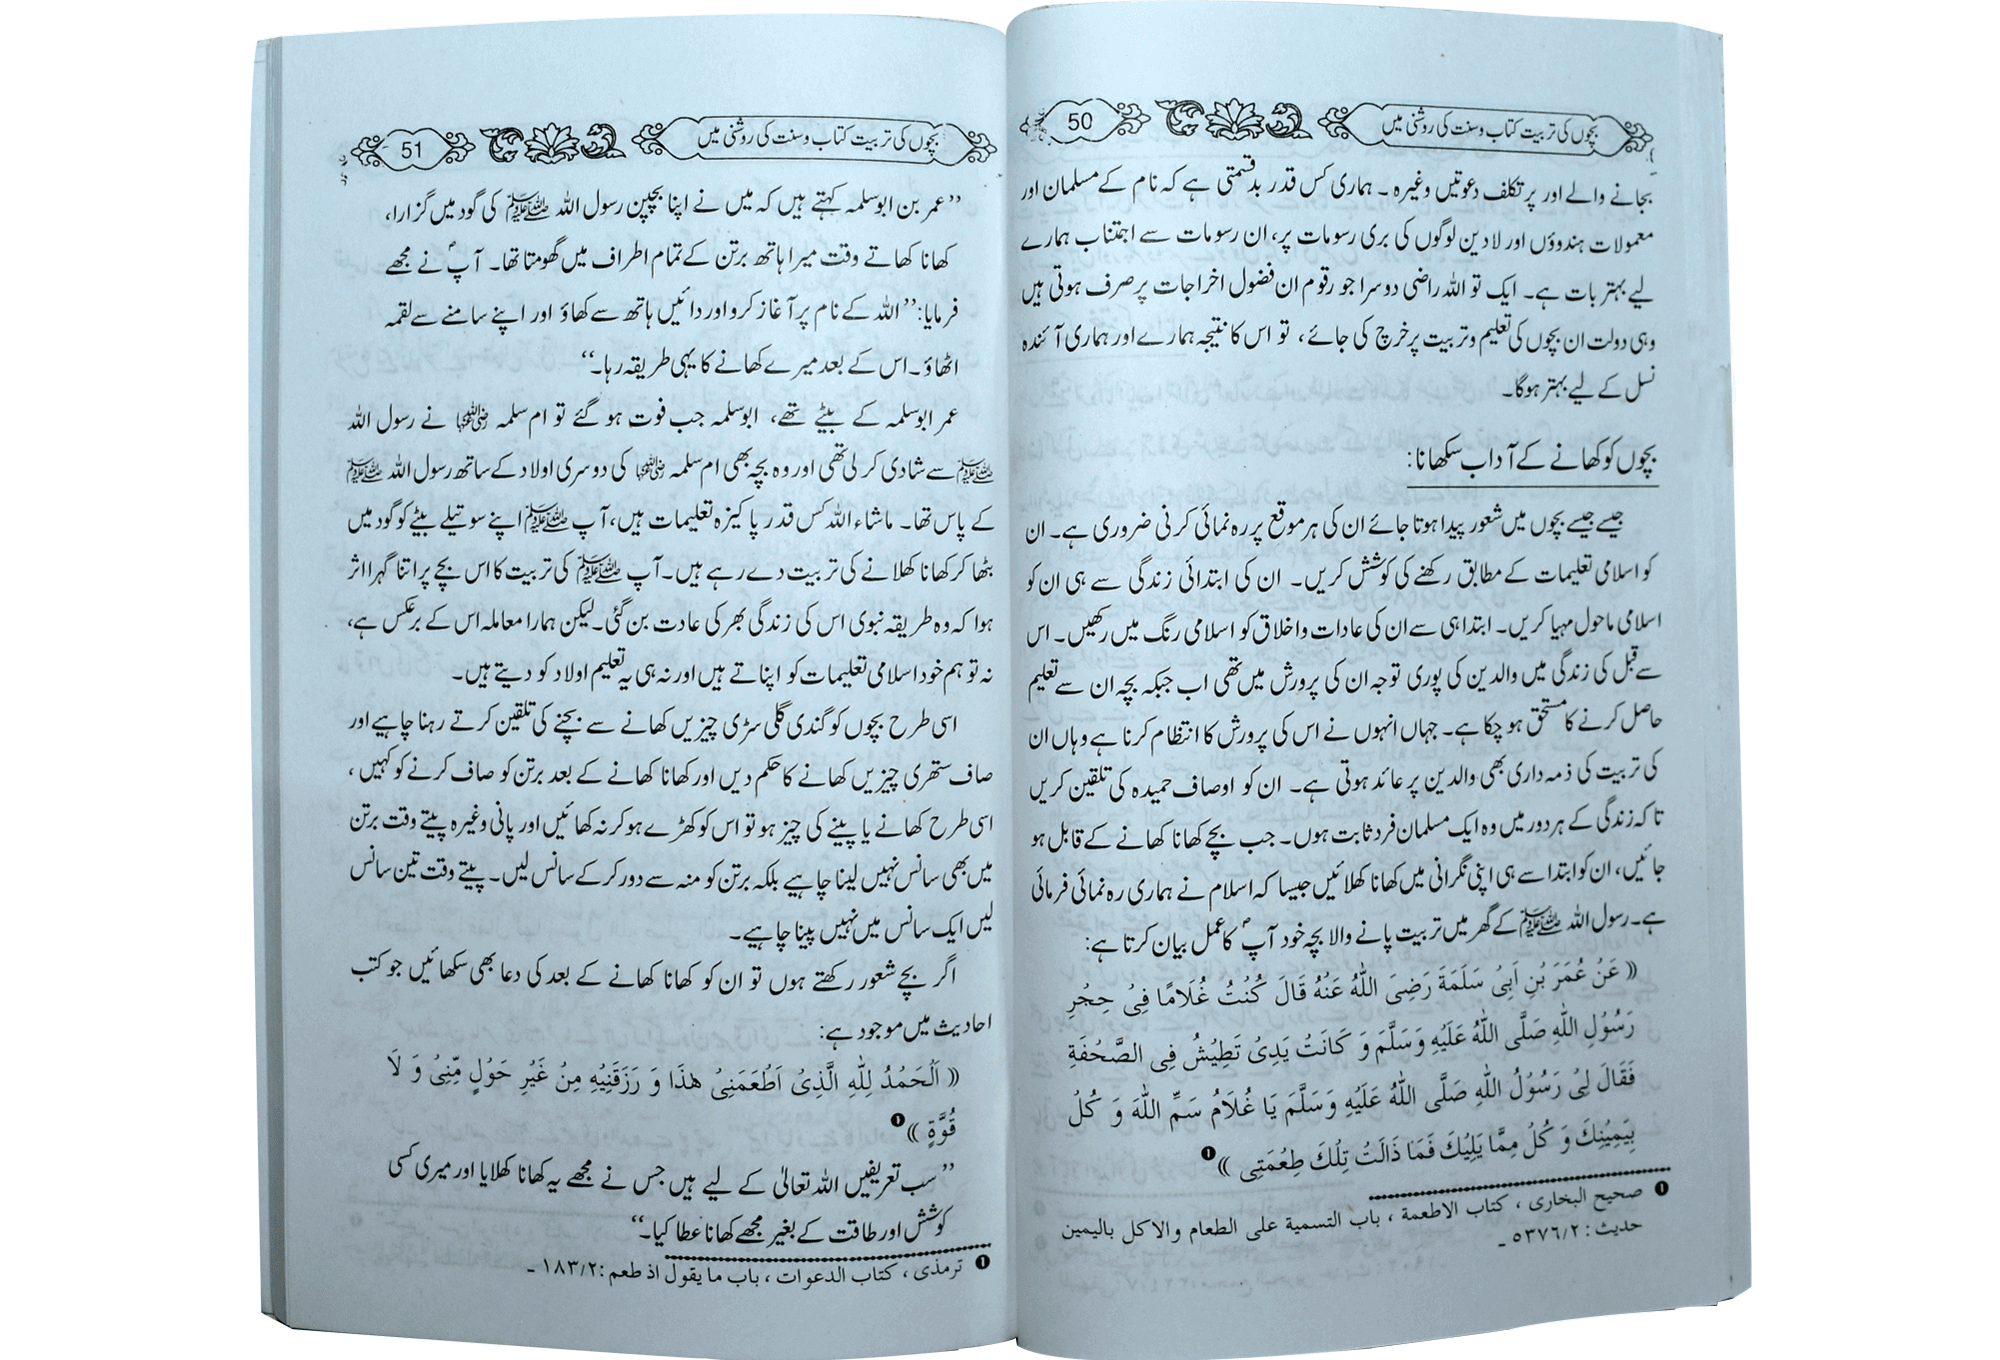 بچوں کی تربیت کتاب و سنت کی روشنی میں
50
بجانے والے اور پر تکلف دعوتیں وغیرہ ۔ ہماری کس قدر بدقسمتی ہے کہ نام کے مسلمان اور
معمولات ہندوؤں اور لادین لوگوں کی بری رسومات پر، ان رسومات سے اجتناب ہمارے
لیے بہتر بات ہے۔ ایک تو اللہ راضی دوسرا جو رقوم ان فضول اخراجات پر صرف ہوتی ہیں
وہی دولت ان بچوں کی تعلیم وتربیت پر خرچ کی جائے ، تو اس کا نتیجہ ہمارے اور ہماری آئندہ
نسل کے لیے بہتر ہوگا۔
بچوں کو کھانے کے آداب سکھانا:
جیسے جیسے بچوں میں شعور پیدا ہوتا جائے ان کی ہر موقع پر رہ نمائی کرنی ضروری ہے۔ ان
کو اسلامی تعلیمات کے مطابق رکھنے کی کوشش کریں۔ ان کی ابتدائی زندگی سے ہی ان کو
اسلامی ماحول مہیا کریں۔ ابتدا ہی سے ان کی عادات واخلاق کو اسلامی رنگ میں رکھیں۔ اس
سے قبل کی زندگی میں والدین کی پوری توجہ ان کی پرورش میں تھی اب جبکہ بچہ ان سے تعلیم
حاصل کرنے کا مستحق ہو چکا ہے۔ جہاں انہوں نے اس کی پرورش کا انتظام کرنا ہے وہاں ان
کی تربیت کی ذمہ داری بھی والدین پر عائد ہوتی ہے۔ ان کو اوصاف حمیدہ کی تلقین کریں
تاکہ زندگی کے ہر دور میں وہ ایک مسلمان فرد ثابت ہوں۔ جب بچے کھانا کھانے کے قابل ہو
جائیں، ان کو ابتدا سے ہی اپنی نگرانی میں کھانا کھلائیں جیسا کہ اسلام نے ہماری رہ نمائی فرمائی
ہے۔ رسول اللہ ﷺ کے گھر میں تربیت پانے والا بچہ خود آپؐ کا عمل بیان کرتا ہے:
(( عَنْ عُمَرَ بْنِ اَبِیْ سَلَمَةَ رَضِیَ اللّٰهُ عَنْهُ قَالَ كُنْتُ غُلَامًا فِیْ حِجْرِ
رَسُوْلِ اللّٰهِ صَلَّی اللّٰهُ عَلَیْهِ وَسَلَّمَ وَ كَانَتْ یَدِیْ تَطِیْشُ فِی الصَّحْفَةِ
فَقَالَ لِیْ رَسُوْلُ اللّٰهِ صَلَّی اللّٰهُ عَلَیْهِ وَسَلَّمَ یَا غُلَامُ سَمِّ اللّٰهَ وَ كُلْ
بِیَمِیْنِكَ وَ كُلْ مِمَّا یَلِیْكَ فَمَا ذَالَتْ تِلْكَ طِعْمَتِی ))❶
❶ صحيح البخاری ، كتاب الاطعمة ، باب التسمية على الطعام والاكل باليمين
حديث : ٥٣٧٦/٢ -
بچوں کی تربیت کتاب و سنت کی روشنی میں
51
’’عمر بن ابوسلمہ کہتے ہیں کہ میں نے اپنا بچپن رسول اللہ ﷺ کی گود میں گزارا،
کھانا کھاتے وقت میرا ہاتھ برتن کے تمام اطراف میں گھومتا تھا۔ آپؐ نے مجھے
فرمایا: ’’اللہ کے نام پر آغاز کرو اور دائیں ہاتھ سے کھاؤ اور اپنے سامنے سے لقمہ
اٹھاؤ۔ اس کے بعد میرے کھانے کا یہی طریقہ رہا۔‘‘
عمر ابوسلمہ کے بیٹے تھے، ابوسلمہ جب فوت ہو گئے تو ام سلمہ رضی اللہ عنہا نے رسول اللہ
ﷺ سے شادی کر لی تھی اور وہ بچہ بھی ام سلمہ رضی اللہ عنہا کی دوسری اولاد کے ساتھ رسول اللہ ﷺ
کے پاس تھا۔ ماشاء اللہ کس قدر پاکیزہ تعلیمات ہیں، آپ ﷺ اپنے سوتیلے بیٹے کو گود میں
بٹھا کر کھانا کھلانے کی تربیت دے رہے ہیں۔ آپ ﷺ کی تربیت کا اس بچے پر اتنا گہرا اثر
ہوا کہ وہ طریقہ نبوی اس کی زندگی بھر کی عادت بن گئی۔ لیکن ہمارا معاملہ اس کے برعکس ہے،
نہ تو ہم خود اسلامی تعلیمات کو اپناتے ہیں اور نہ ہی یہ تعلیم اولاد کو دیتے ہیں۔
اسی طرح بچوں کو گندی گلی سڑی چیزیں کھانے سے بچنے کی تلقین کرتے رہنا چاہیے اور
صاف ستھری چیزیں کھانے کا حکم دیں اور کھانا کھانے کے بعد برتن کو صاف کرنے کو کہیں ،
اسی طرح کھانے یا پینے کی چیز ہو تو اس کو کھڑے ہو کر نہ کھائیں اور پانی وغیرہ پیتے وقت برتن
میں بھی سانس نہیں لینا چاہیے بلکہ برتن کو منہ سے دور کر کے سانس لیں۔ پیتے وقت تین سانس
لیں ایک سانس میں نہیں پینا چاہیے۔
اگر بچے شعور رکھتے ہوں تو ان کو کھانا کھانے کے بعد کی دعا بھی سکھائیں جو کتب
احادیث میں موجود ہے:
(( اَلْحَمْدُ لِلّٰهِ الَّذِیْ اَطْعَمَنِیْ هٰذَا وَ رَزَقَنِیْهِ مِنْ غَیْرِ حَوْلٍ مِّنِّیْ وَ لَا
قُوَّةٍ ))❶
’’سب تعریفیں اللہ تعالیٰ کے لیے ہیں جس نے مجھے یہ کھانا کھلایا اور میری کسی
کوشش اور طاقت کے بغیر مجھے کھانا عطا کیا۔‘‘
❶ ترمذی ، كتاب الدعوات ، باب ما يقول اذ طعم : ١٨٣/٢ -